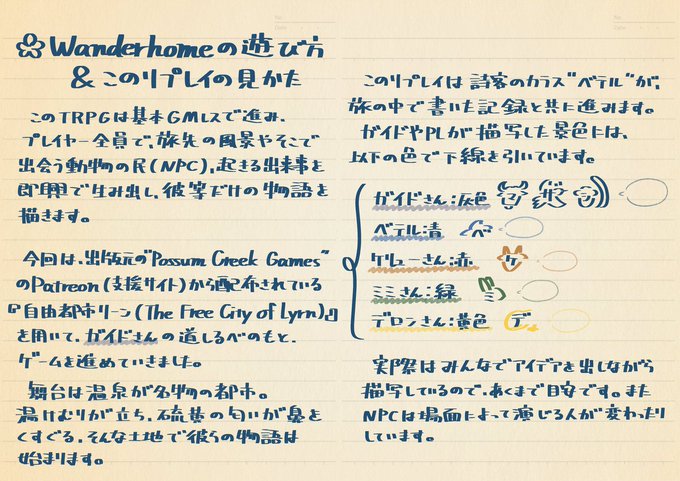 Wanderhomeの遊び方
&このリプレイの見かた
このTRPGは基本GMレスで進み、
プレイヤー全員で、旅先の風景やそこで
出会う動物の民(NPC)、起きる出来事を
即興で生み出し、彼等だけの物語を
描きます。
今回は、出版元の"Possum Creek Games"
のPatreon(支援サイト)から配布されている
『自由都市リーン(The Free City of Lyrn)』
を用いて、ガイドさんの道しるべのもと、
ゲームを進めていきました。
舞台は温泉が名物の都市。
湯けむりが立ち、硫黄の匂いが鼻を
くすぐる、そんな土地で彼らの物語は
始まります。
No.
Date
このリプレイは詩客のカラス"ベテル"が、
旅の中で書いた記録と共に進みます。
ガイドやPLが描写した景色には、
以下の色で下線を引いています。
ガイドさん:灰色
ベテル:青
ケリューさん:赤 ケ
ミミさん:緑 ミ
デロンさん:黄色 デ
実際はみんなでアイデアを出しながら
描写しているので、あくまで目安です。また
NPCは場面によって演じる人が変わったり
しています。